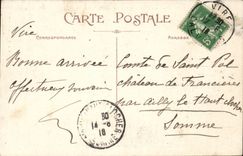 CARTE POSTALE
CORRESPONDANCE
VIRE
Vire
Bonne arrivée
Affectueux souvenir
Comte de Saint Pol
château de Francières
par Ailly le Haut Clocher
Somme